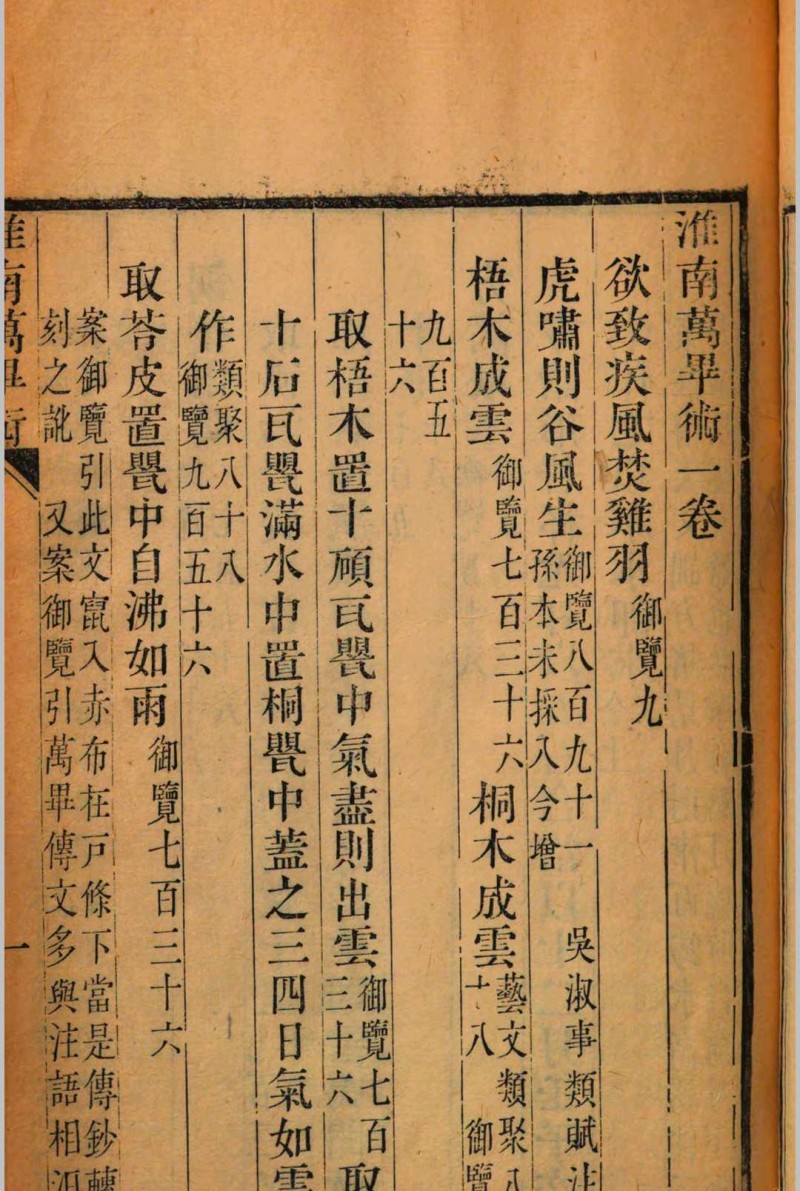 淮南萬畢術一卷
欲致疾風焚雞羽御覽九
虎嘯則谷風生御覽八百九十一 吳淑事類賦注
孫本未採入今增
梧木成雲御覽七百三十六桐木成雲藝文類聚八
十八 御覽
九百五
十六
取梧木置十碩瓦甖中氣盡則出雲御覽七百
三十六取
十石瓦甖滿水中置桐甖中蓋之三四日氣如雲
作類聚八十八
御覽九百五十六
取荅皮置甖中自沸如雨御覽七百三十六
案御覽引此文竄入赤布在戸條下當是傳鈔轉
刻之訛 又案御覽引萬畢傳文多與注語相
淮南萬畢術 一